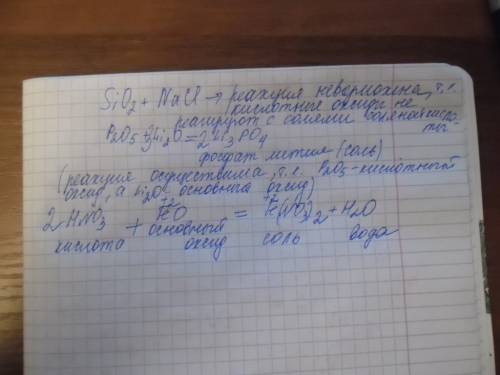 SiO₂ + NaCl → (реакция невозможна, т.к.
кислотные оксиды не
реагируют с солями соляной кислоты
P₂O₅ + 3Li₂O = 2Li₃PO₄
фосфат лития (соль)
(реакция осуществима, т.к. P₂O₅ - кислотный
оксид, а Li₂O - основный оксид)
2HNO₃ + FeO = Fe(NO₃)₂ + H₂O
кислота основный оксид соль вода